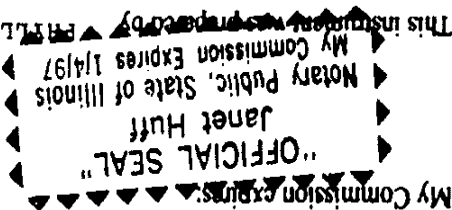 My Commission expires:
"OFFICIAL SEAL"
Janet Huff
Notary Public, State of Illinois
My Commission Expires 1/4/97
This instrument was prepared by